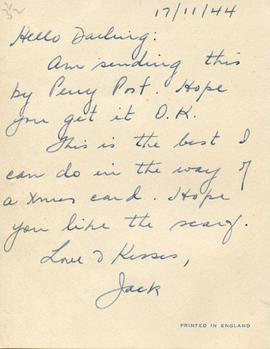 17/11/44
Hello Darling:
Am sending this
by Perry Post. Hope
you get it O.K.
This is the best I
can do in the way of
a Xmas card. Hope
you like the scarf.
Love & Kisses,
Jack
PRINTED IN ENGLAND